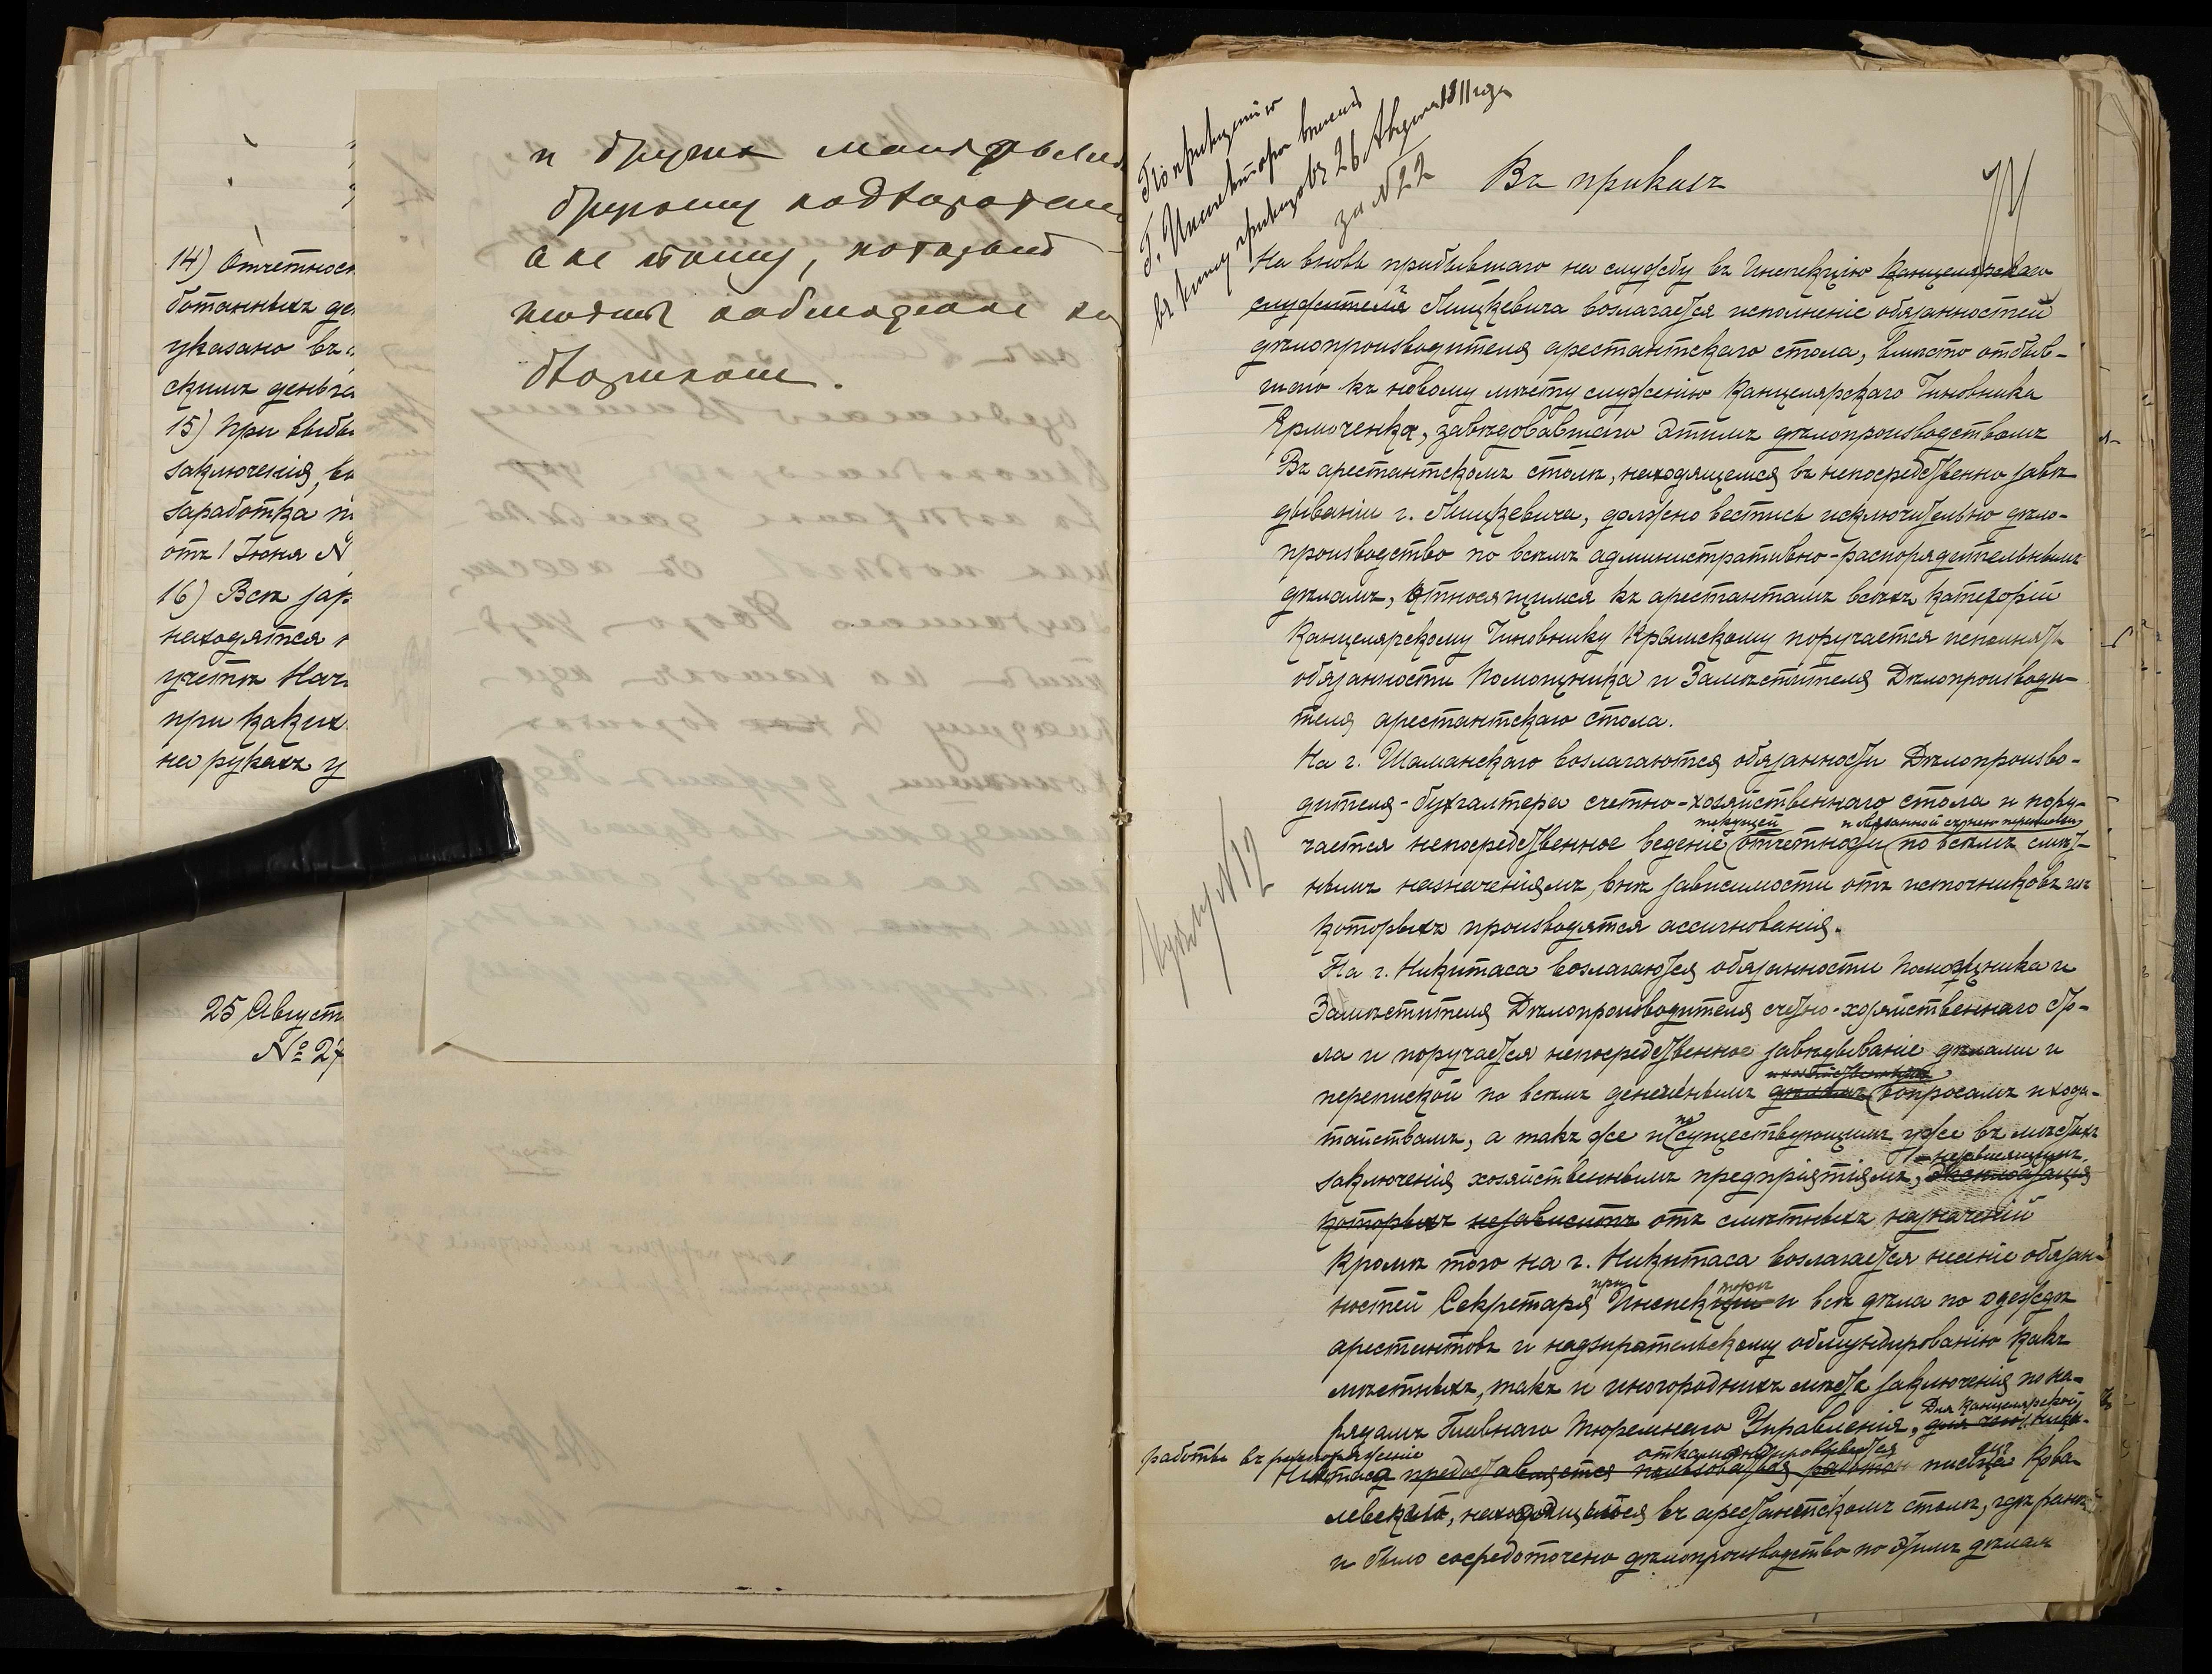 14) Отчетнос
ботанныхъ де
указано въ
скимъ деньга
15) При выбы
заключенія, во
заработка
отъ 1 Іюня №
16) Всѣ зар
находятся
учетѣ Нач
при какихъ
на рукахъ у
25 Август
№ 27
и другія
другому
а не тому, который
По приведеніи
Г. Инспектора внесенъ
въ книгу приказовъ 26 Августа 1911 года
за № 22
Въ приказъ
На вновь прибывшаго на службу въ Инспекцію Канцелярскаго
служителя Мицкевича возлагается исполненіе обязанностей
дѣлопроизводителя арестантскаго стола, вмѣсто отбыв-
шаго къ новому мѣсту служенію Канцелярскаго Чиновника
Ярмоченка, завѣдовавшаго этимъ дѣлопроизводствомъ
Въ арестантскомъ столѣ, находящемся въ непосредственно завѣ
дываніи г. Мицкевича, должно вестись исключительно дѣло-
производство по всѣмъ административно-распорядительнымъ
дѣламъ, относящимся къ арестантамъ всѣхъ категорій
Канцелярскому Чиновнику Крымскому поручается исполнять
обязанности Помощника и Замѣстителя Дѣлопроизводи-
теля арестантскаго стола.
На г. Шаманскаго возлагаются обязанности Дѣлопроизво-
дителя-бухгалтера счетно-хозяйственнаго стола и пору-
текущей и связанной съ нею переписки
чается непосредственное веденіе отчетности по всѣмъ смѣт-
нымъ назначеніямъ, внѣ зависимости отъ источниковъ изъ
которыхъ производятся ассигнованія.
На г. Никитаса возлагаются обязанности Помощника и
Замѣстителя Дѣлопроизводителя счетно-хозяйственнаго сто-
ла и поручается непосредственное завѣдываніе дѣлами и
и хозяйственнымъ
перепиской по всѣмъ денежнымъ дѣламъ вопросамъ и хода-
по
тайствамъ, а такъ же и существующимъ уже въ мѣстахъ
независящимъ
заключенія хозяйственнымъ предпріятіямъ, эксплоатація
которыхъ независитъ отъ смѣтныхъ назначеній
Кромѣ того на г. Никитаса возлагается несеніе обязан-
при тора
ностей Секретаря Инспекціи и всѣ дѣла по одеждѣ
арестантовъ и надзирательскому обмундированію какъ
мѣстныхъ, такъ и иногороднихъ мѣстъ заключенія по на-
Для Канцелярской
рядамъ Главнаго Тюремнаго Управленія, для чего Ники-
работы въ распоряженіе откомандировывается
Никитаса предоставляется пользоваться работою писца Кова-
левскаго, находящагося въ арестантскомъ столѣ, гдѣ ранѣе
и было сосредоточено дѣлопроизводство по этимъ дѣлам